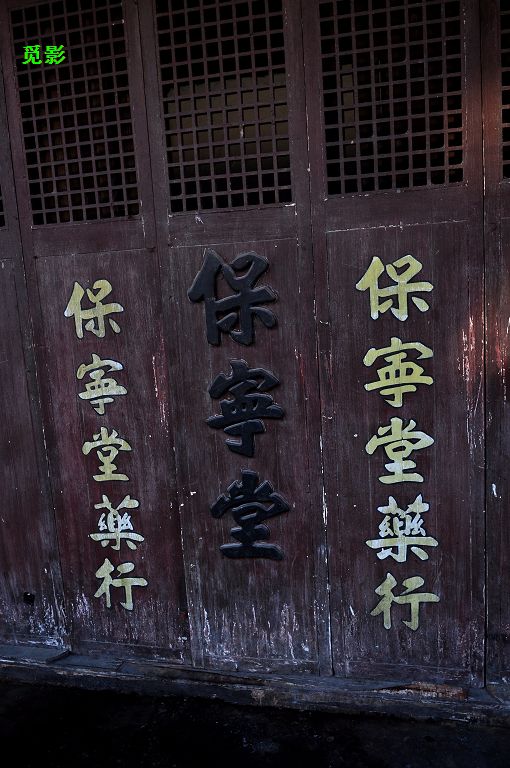 觅影
保寧堂藥行
保寧堂
保寧堂藥行